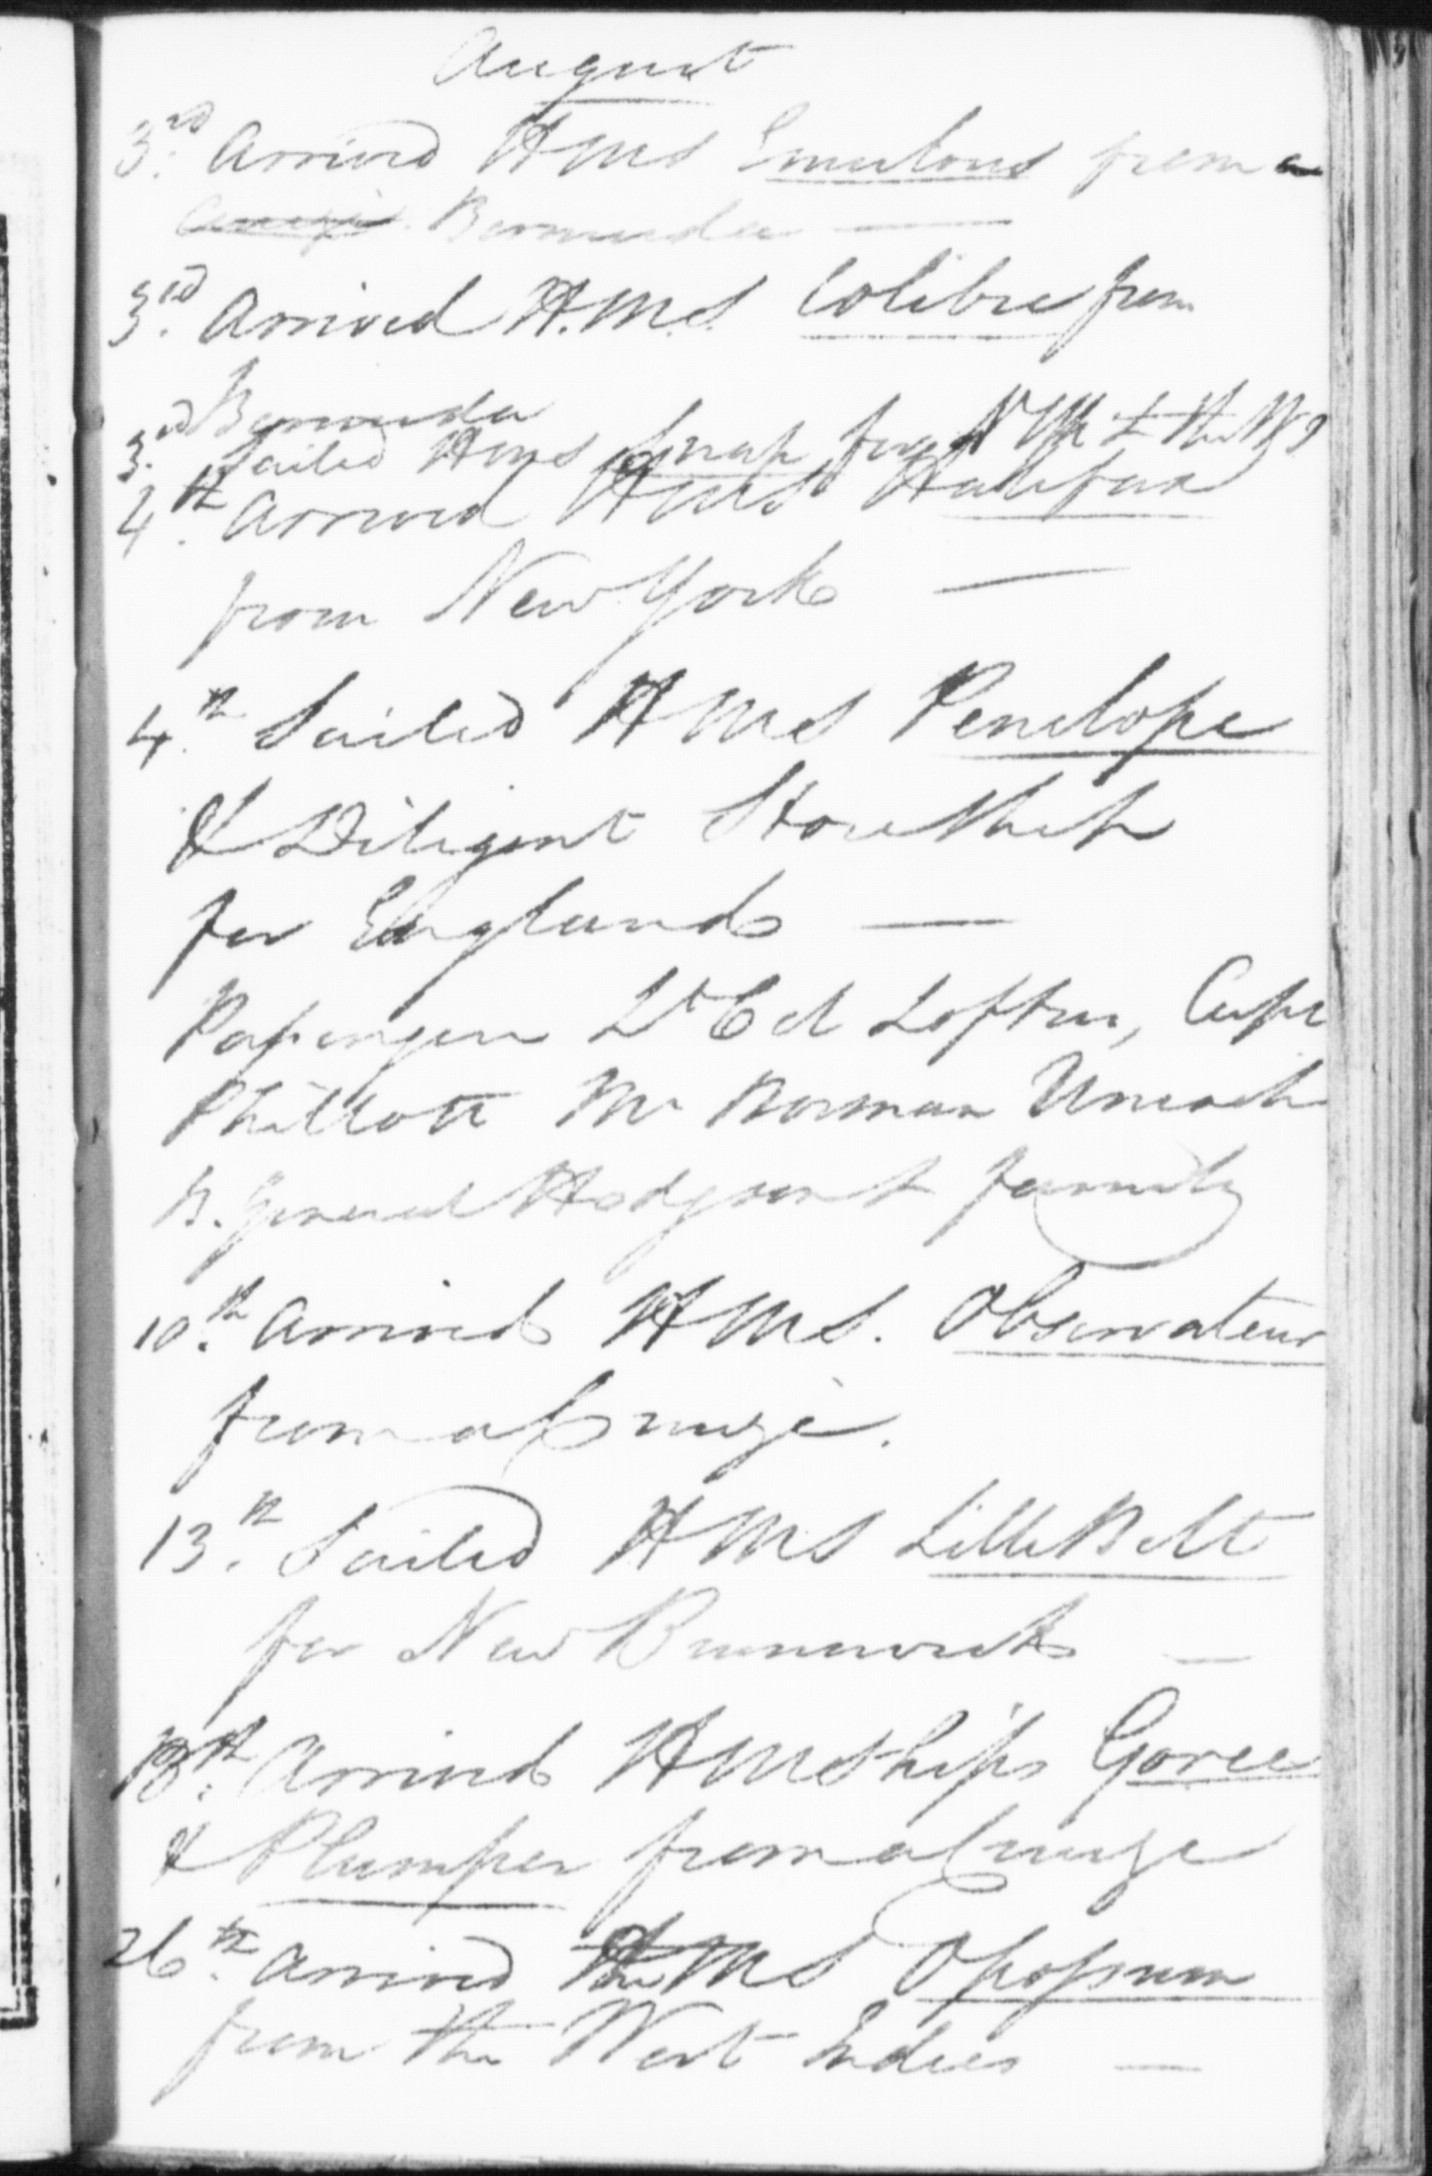 August
3rd. Arrived HMS Emulous from a
Cruize Bermuda —
3rd. Arrived H.M.S. Colibre from
Bermuda
3rd. Sailed HMS for the WI
4th. Arrived HMS Halifax
from New York —
4th. Sailed HMS Penelope
& Diligent Store Ship
for England —
Passengers Lt Col Loftus, Capt
Phillott Mr Norman Uniacke
B. General Hodgson & family
10th. Arrived HMS. Observateur
from a Cruize.
13th. Sailed HMS Lille Belt
for New Brunswick —
13th. Arrived HM Ships Goree
& Plumper from a Cruize
26th. Arrived HMS Opossum
from the West Indies —